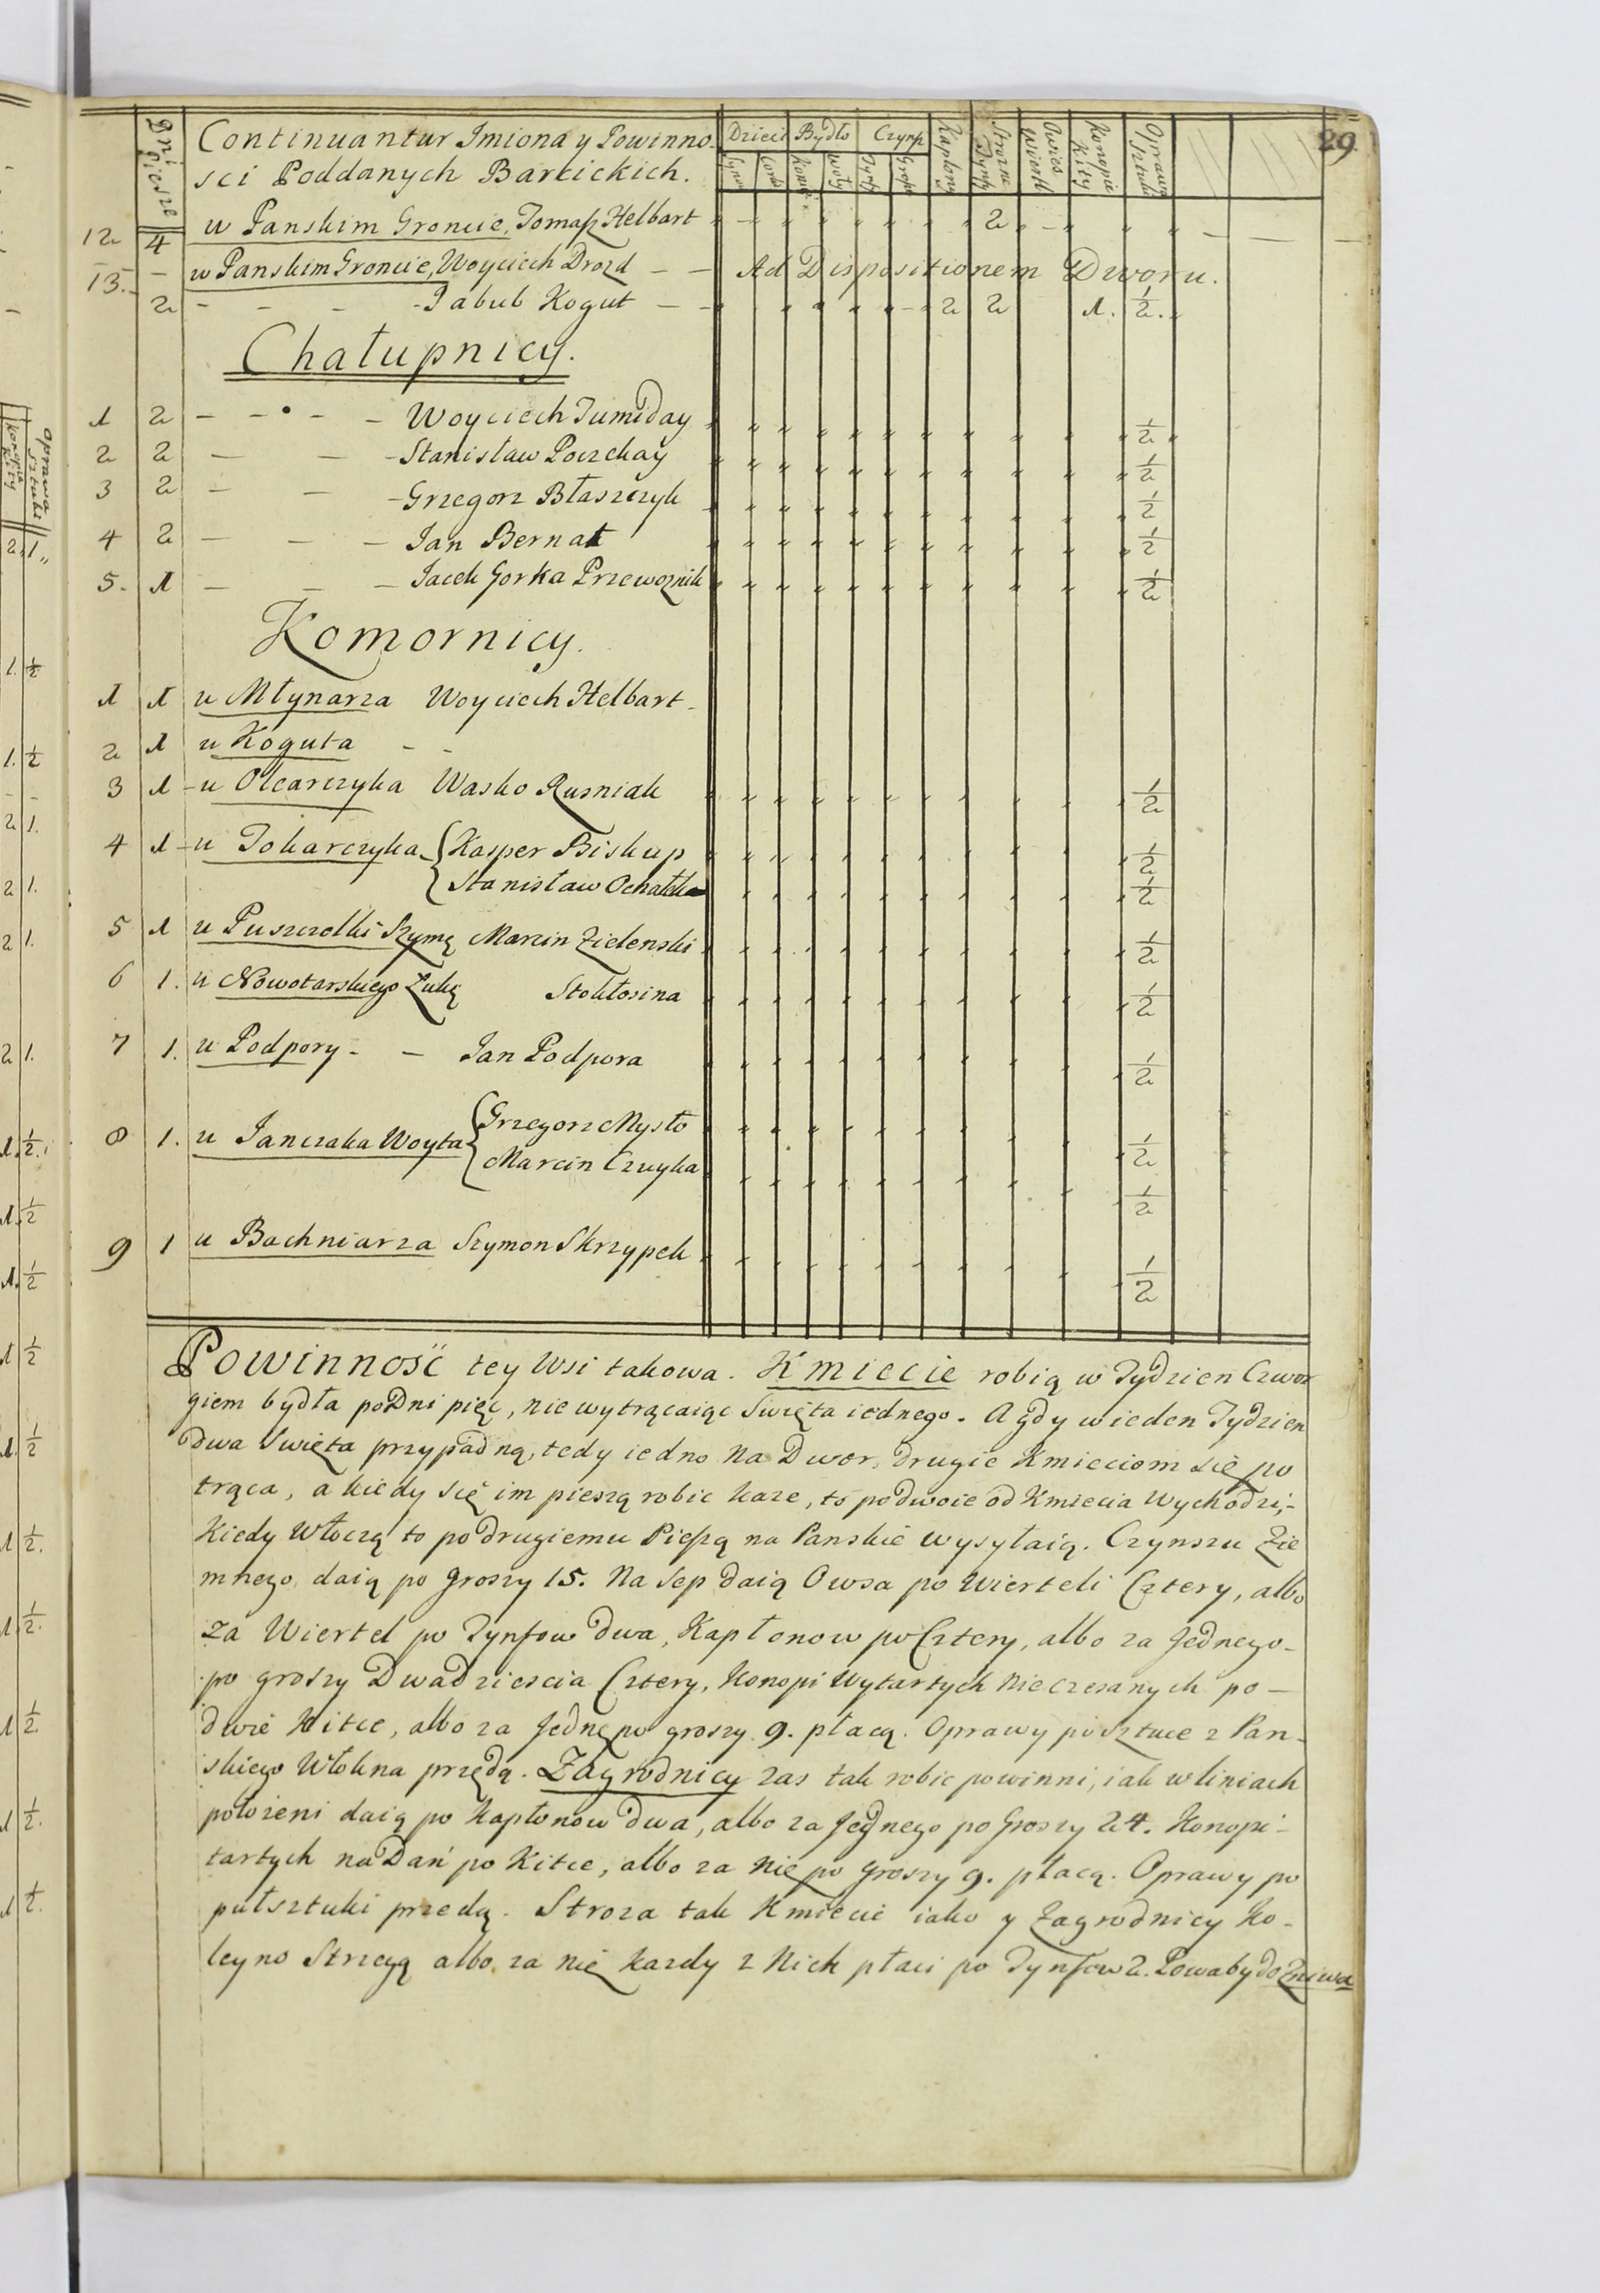 29
Dni piesze
Continuantur Imiona y Powinno-
sci Poddanych Barcickich.
Dzieci Bydło Czynß
Synow Corek Konie Woły Tynfy Grosze
Kapłony
Strozne Tynfy
Owies Wiertl
Konopie Kity
Oprawa Sztuki
12 4 u Panskim Groncie, Tomaß Helbart 2
13. – w Panskim Groncie, Woyciech Drozd – – Ad Dispositionem Dworu.
2 – – – Jakub Kogut – – 2 2 1. 1/2.
Chałupnicy.
1 2 – – – – Woyciech Tumiday 1/2
2 2 – – – Stanisław Poczekay 1/2
3 2 – – – Grzegorz Błaszczyk 1/2
4 2 – – – Jan Bernat 1/2
5. 1 – – – Jacek Gorka Przewoznik 1/2
Komornicy.
1 1 u Młynarza Woyciech Helbart
2 1 u Koguta – –
3 1 u Olearczyka Wasko Rusniak 1/2
4 1 u Tokarczyka { Kasper Biskup 1/2
Stanisław Ochałka 1/2
5 1 u Puszczołki Szymą Marcin Zielenski 1/2
6 1. u Nowotarskiego Łukę Stokłosina 1/2
7 1. u Podpory – – Jan Podpora 1/2
8 1. u Janczaka Woyta { Grzegorz Mysło 1/2
Marcin Czuyka 1/2
9 1 u Bachniarza Szymon Skrzypek 1/2
Powinność tey Wsi takowa. Kmiecie robią w Tydzien Czwor
giem bydła po Dni pięc, nie wytrącaiąc Swięta iednego. A gdy w ieden Tydzien
dwa Swięta przypadną, tedy iedno na Dwor, drugie Kmieciom się po
trąca, a kiedy się im pieszą robic kaze, to podwoie od Kmiecia Wychodzi,
Kiedy Włoczą to po drugiemu Pießą na Panskie wysyłaią. Czynszu Zie
mnego daią po groszy 15. Na Sep daią Owsa po Wierteli Cztery, albo
za Wiertel po Tynfow dwa, Kapłonow po Cztery, albo za Jednego
po groszy Dwadziescia Cztery, Konopi Wytartych nie czesanych po
dwie Kitce, albo za Jednę po groszy 9. płacą. Oprawy po sztuce z Pan
skiego Włokna przędą. Zagrodnicy zas tak robic powinni, iak w liniach
położeni daią po Kapłonow dwa, albo za Jednego po Groszy 24. Konopi
tartych na Dań po Kitce, albo za nię po groszy 9. płacą. Oprawy po
pułsztuki przedą. Stroza tak Kmiecie iako y Zagrodnicy Ko-
leyno Strzegą albo za nię kazdy z Nich płaci po Tynfow 2. Powaby do Zniwa